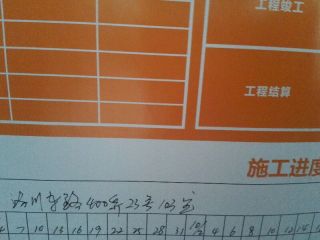 工程竣工
工程结算
施工进度
川东路400弄23号103室
7 10 13 16 19 22 25 28 31 4 6 8 10 12 14